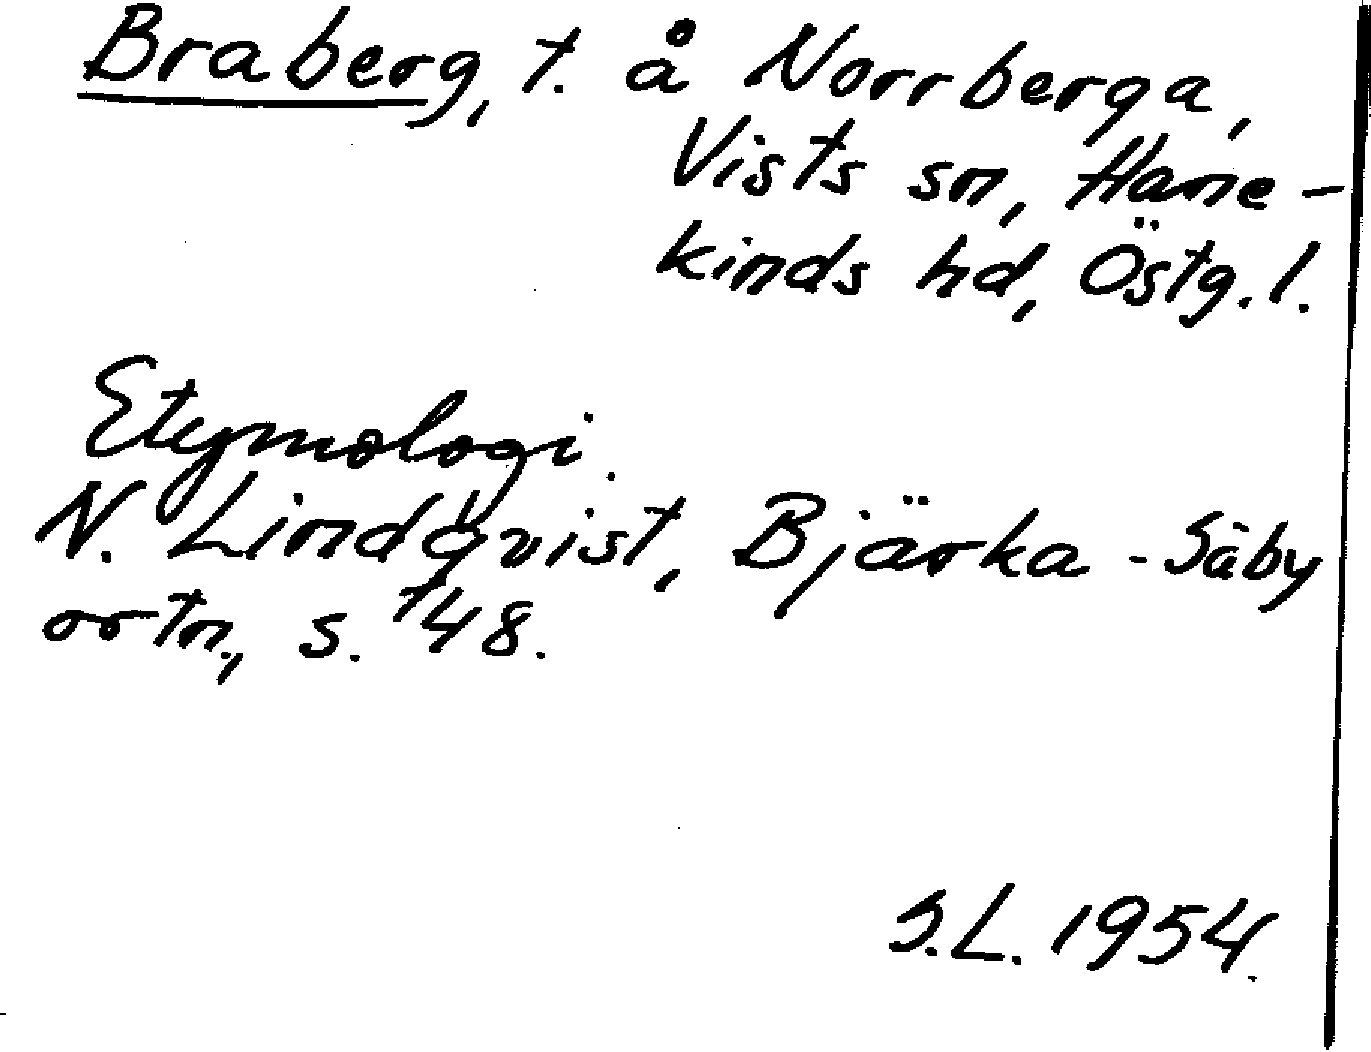 Braberg, t. å Norrberga,
Vists sn, Hane-
kinds hd, Östg. l.
Etymologi.
N. Lindqvist, Bjärka-Säby
ortn., s. 48.
S.L. 1954.